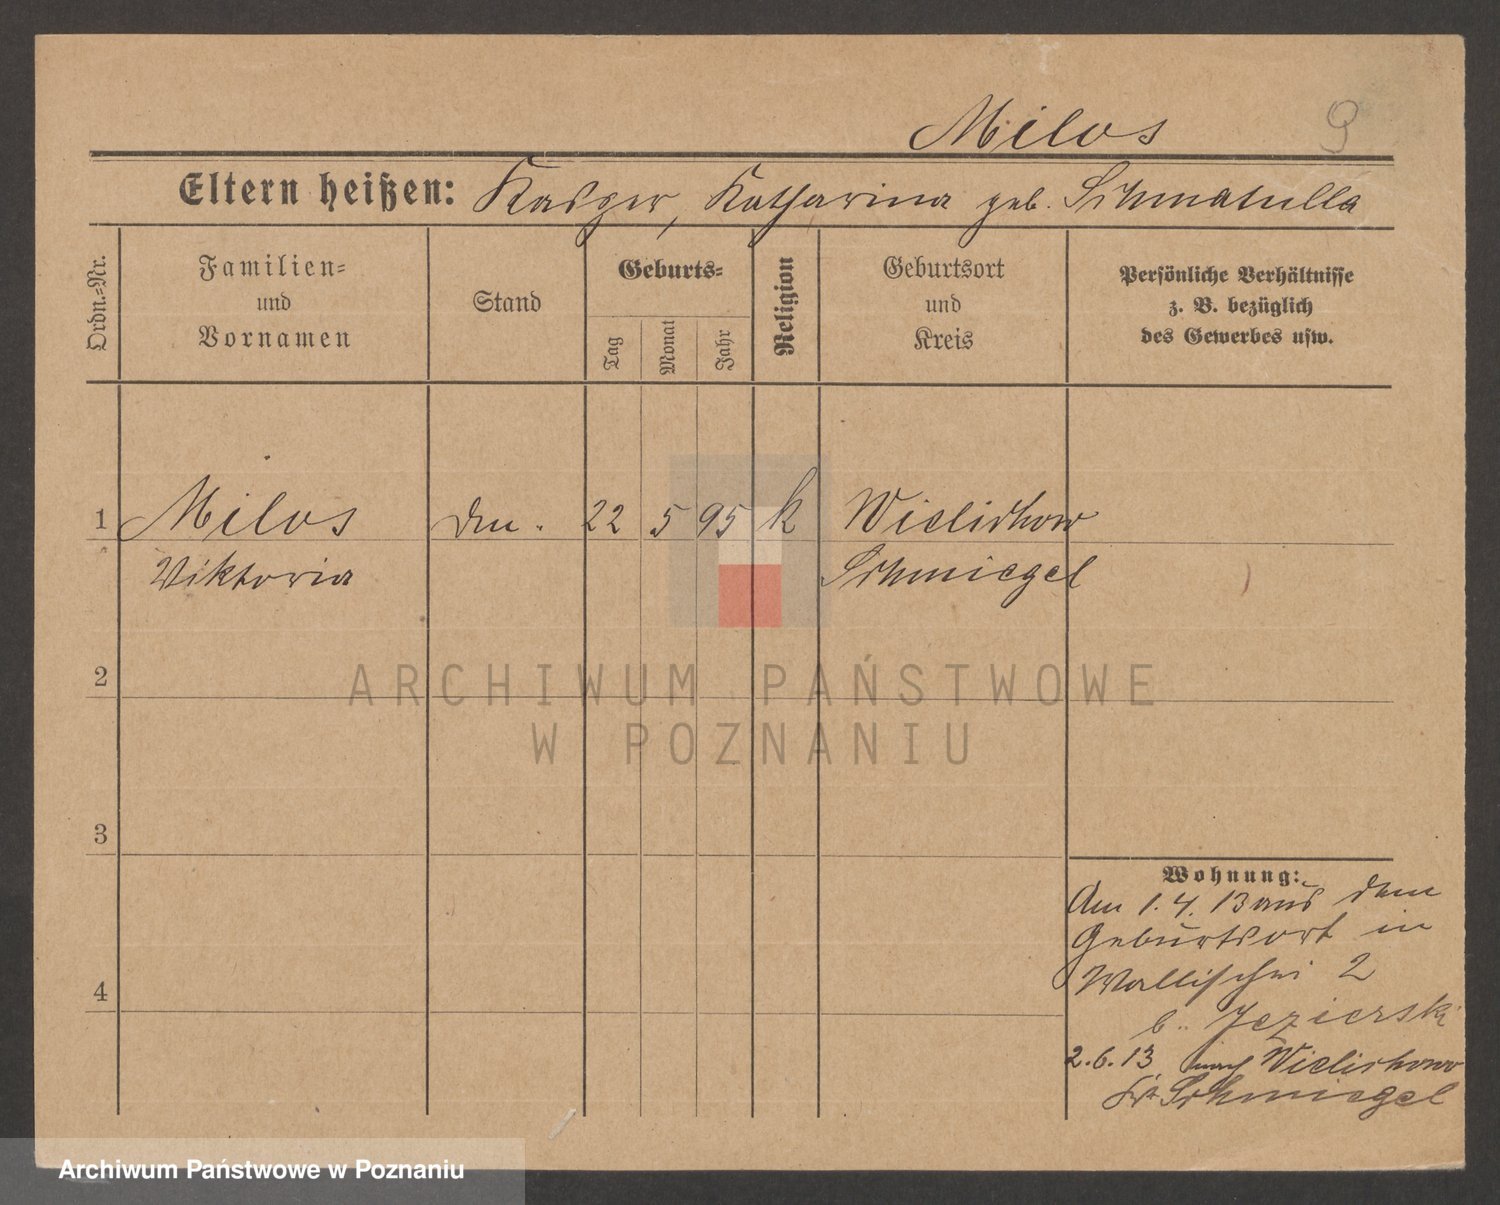 Milos 9
Eltern heißen: Kasper, Katharina geb. Schmatulla
Ordn.=Nr.
Familien=
und
Vornamen
Stand
Geburts=
Tag
Monat
Jahr
Religion
Geburtsort
und
Kreis
Persönliche Verhältnisse
z. B. bezüglich
des Gewerbes usw.
1 Milos 22 5 95 k Wielichow
Viktoria Schmiegel
2
ARCHIWUM PAŃSTWOWE
W POZNANIU
3
4
Wohnung:
Am 1.4.13 aus dem
Geburtsort in
Wallischei 2
b. Jezierski
2.6.13 nach Wielichowo
Kr. Schmiegel
Archiwum Państwowe w Poznaniu